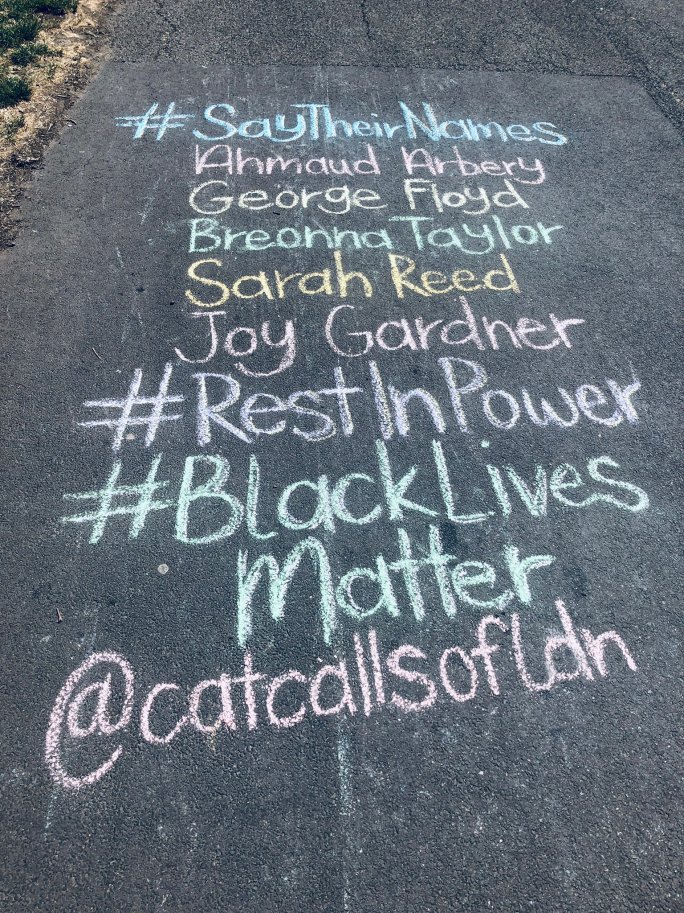 #SayTheirNames
Ahmaud Arbery
George Floyd
Breonna Taylor
Sarah Reed
Joy Gardner
#RestInPower
#BlackLives
Matter
@catcallsofldn